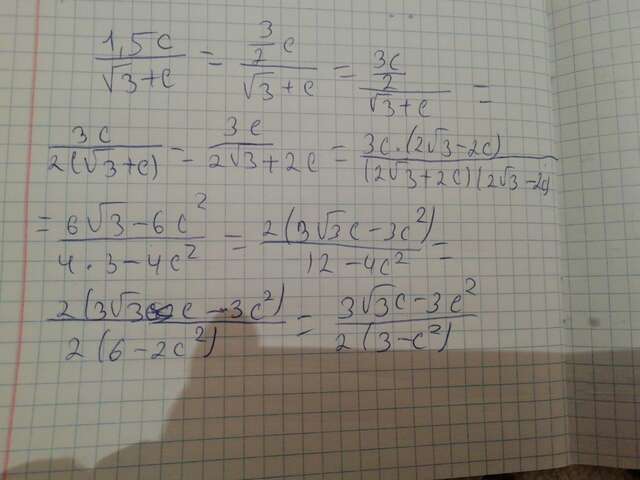 1,5c/(√3+c) = (3/2 c)/(√3+c) = (3c/2)/(√3+c) =
3c/(2(√3+c)) = 3c/(2√3+2c) = 3c·(2√3-2c)/((2√3+2c)(2√3-2c
= (6√3-6c²)/(4·3-4c²) = 2(3√3c-3c²)/(12-4c²) =
2(3√3c-3c²)/(2(6-2c²)) = (3√3c-3c²)/(2(3-c²))